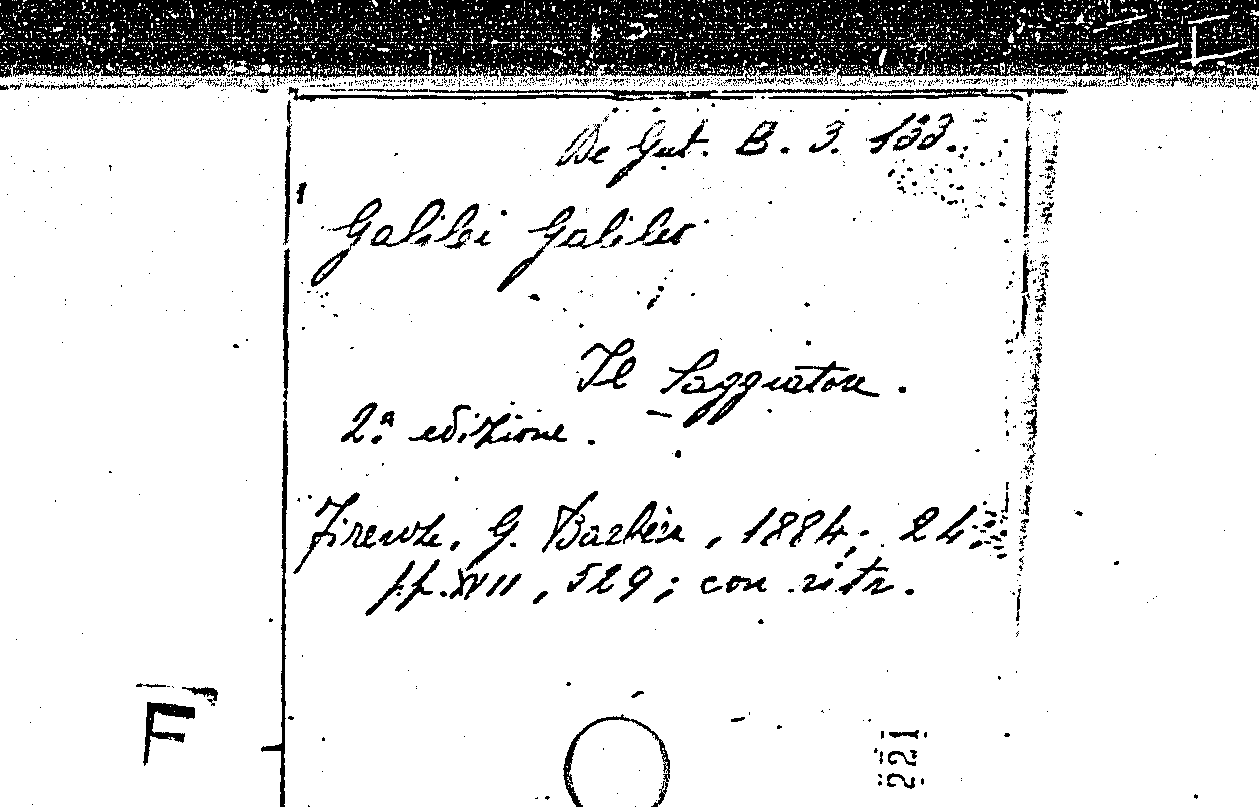 De Gub. B. 3. 133.
Galilei Galileo
Il Saggiatore.
2.ª edizione.
Firenze, G. Barbèra, 1884; 24.º
pp. XVII, 529; con ritr.
F
221